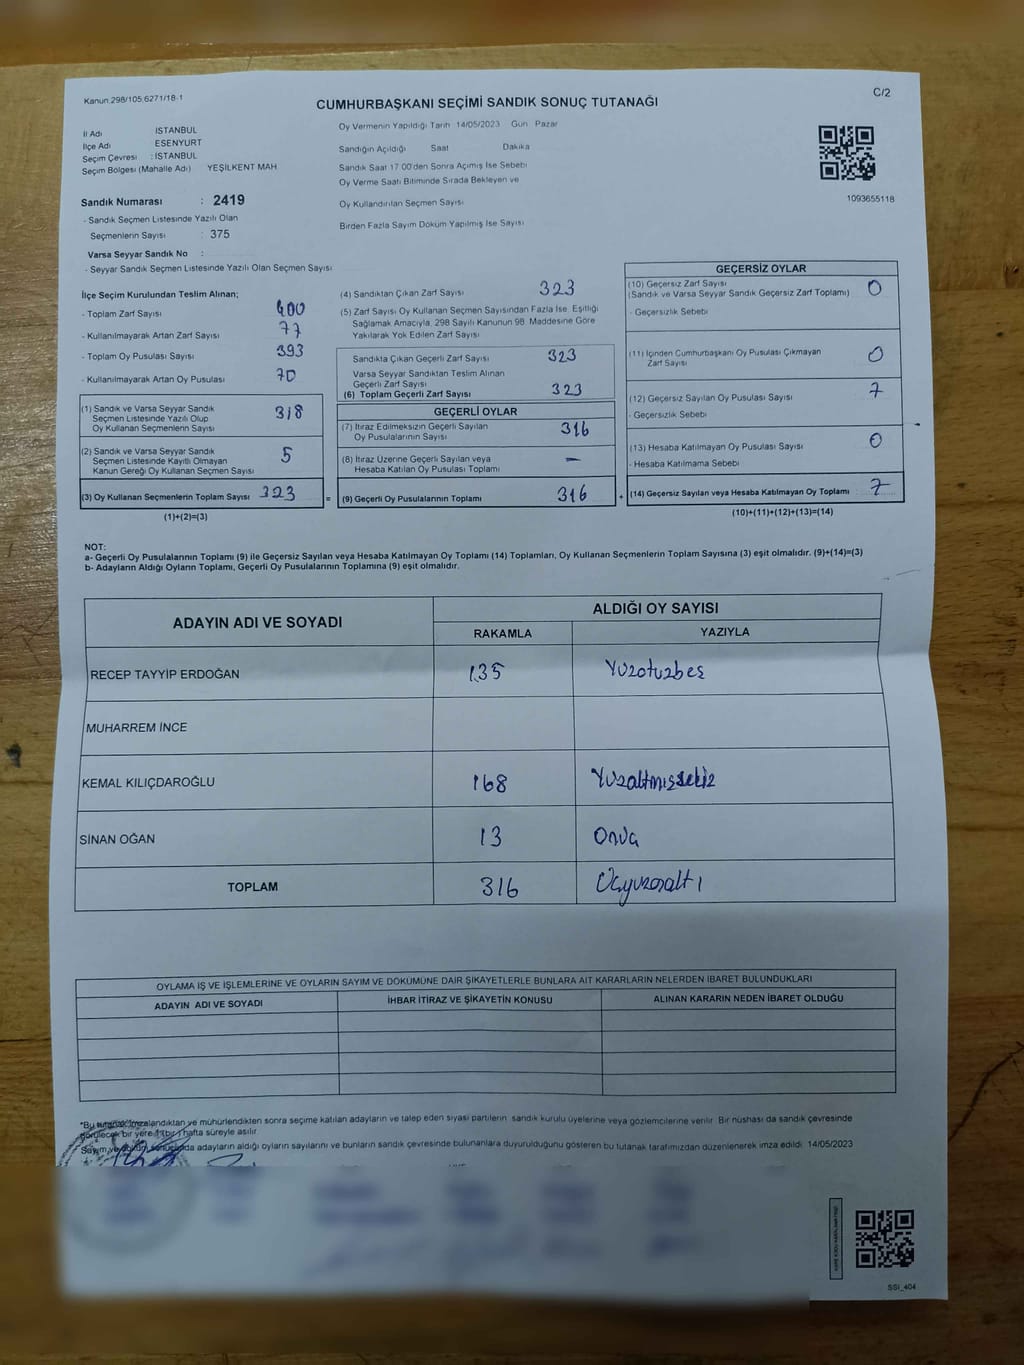 Kanun.298/105;6271/18-1
C/2
CUMHURBAŞKANI SEÇİMİ SANDIK SONUÇ TUTANAĞI
İl Adı İSTANBUL
İlçe Adı ESENYURT
Seçim Çevresi : İSTANBUL
Seçim Bölgesi (Mahalle Adı) YEŞİLKENT MAH
Oy Vermenin Yapıldığı Tarih 14/05/2023 Gün Pazar
Sandığın Açıldığı Saat Dakika
Sandık Saat 17:00'den Sonra Açımış İse Sebebi
Oy Verme Saati Bitiminde Sırada Bekleyen ve
Oy Kullandırılan Seçmen Sayısı
Birden Fazla Sayım Döküm Yapılmış İse Sayısı
1093655118
Sandık Numarası : 2419
- Sandık Seçmen Listesinde Yazılı Olan
Seçmenlerin Sayısı : 375
Varsa Seyyar Sandık No :
- Seyyar Sandık Seçmen Listesinde Yazılı Olan Seçmen Sayısı
İlçe Seçim Kurulundan Teslim Alınan;
- Toplam Zarf Sayısı 400
- Kullanılmayarak Artan Zarf Sayısı 77
- Toplam Oy Pusulası Sayısı 393
- Kullanılmayarak Artan Oy Pusulası 70
(1) Sandık ve Varsa Seyyar Sandık
Seçmen Listesinde Yazılı Olup
Oy Kullanan Seçmenlerin Sayısı 318
(2) Sandık ve Varsa Seyyar Sandık
Seçmen Listesinde Kayıtlı Olmayan
Kanun Gereği Oy Kullanan Seçmen Sayısı 5
(3) Oy Kullanan Seçmenlerin Toplam Sayısı 323
(1)+(2)=(3)
(4) Sandıktan Çıkan Zarf Sayısı 323
(5) Zarf Sayısı Oy Kullanan Seçmen Sayısından Fazla İse, Eşitliği
Sağlamak Amacıyla, 298 Sayılı Kanunun 98. Maddesine Göre
Yakılarak Yok Edilen Zarf Sayısı
Sandıkta Çıkan Geçerli Zarf Sayısı 323
Varsa Seyyar Sandıktan Teslim Alınan
Geçerli Zarf Sayısı
(6) Toplam Geçerli Zarf Sayısı 323
GEÇERLİ OYLAR
(7) İtiraz Edilmeksizin Geçerli Sayılan
Oy Pusulalarının Sayısı 316
(8) İtiraz Üzerine Geçerli Sayılan veya
Hesaba Katılan Oy Pusulası Toplamı —
= (9) Geçerli Oy Pusulalarının Toplamı 316
GEÇERSİZ OYLAR
(10) Geçersiz Zarf Sayısı
(Sandık ve Varsa Seyyar Sandık Geçersiz Zarf Toplamı) 0
- Geçersizlik Sebebi
(11) İçinden Cumhurbaşkanı Oy Pusulası Çıkmayan
Zarf Sayısı 0
(12) Geçersiz Sayılan Oy Pusulası Sayısı 7
- Geçersizlik Sebebi
(13) Hesaba Katılmayan Oy Pusulası Sayısı 0
- Hesaba Katılmama Sebebi
+ (14) Geçersiz Sayılan veya Hesaba Katılmayan Oy Toplamı 7
(10)+(11)+(12)+(13)=(14)
NOT:
a- Geçerli Oy Pusulalarının Toplamı (9) ile Geçersiz Sayılan veya Hesaba Katılmayan Oy Toplamı (14) Toplamları, Oy Kullanan Seçmenlerin Toplam Sayısına (3) eşit olmalıdır. (9)+(14)=(3)
b- Adayların Aldığı Oyların Toplamı, Geçerli Oy Pusulalarının Toplamına (9) eşit olmalıdır.
ADAYIN ADI VE SOYADI ALDIĞI OY SAYISI
RAKAMLA YAZIYLA
RECEP TAYYİP ERDOĞAN 135 Yüzotuzbeş
MUHARREM İNCE
KEMAL KILIÇDAROĞLU 168 Yüzaltmışsekiz
SİNAN OĞAN 13 Onüç
TOPLAM 316 Üçyüzonaltı
OYLAMA İŞ VE İŞLEMLERİNE VE OYLARIN SAYIM VE DÖKÜMÜNE DAİR ŞİKAYETLERLE BUNLARA AİT KARARLARIN NELERDEN İBARET BULUNDUKLARI
ADAYIN ADI VE SOYADI İHBAR İTİRAZ VE ŞİKAYETİN KONUSU ALINAN KARARIN NEDEN İBARET OLDUĞU
*Bu tutanak imzalandıktan ve mühürlendikten sonra seçime katılan adayların ve talep eden siyasi partilerin sandık kurulu üyelerine veya gözlemcilerine verilir. Bir nüshası da sandık çevresinde
görülecek bir yere 1 (bir) hafta süreyle asılır.
Sayım ve döküm sonucunda adayların aldığı oyların sayılarını ve bunların sandık çevresinde bulunanlara duyurulduğunu gösteren bu tutanak tarafımızdan düzenlenerek imza edildi. 14/05/2023
SSI_404